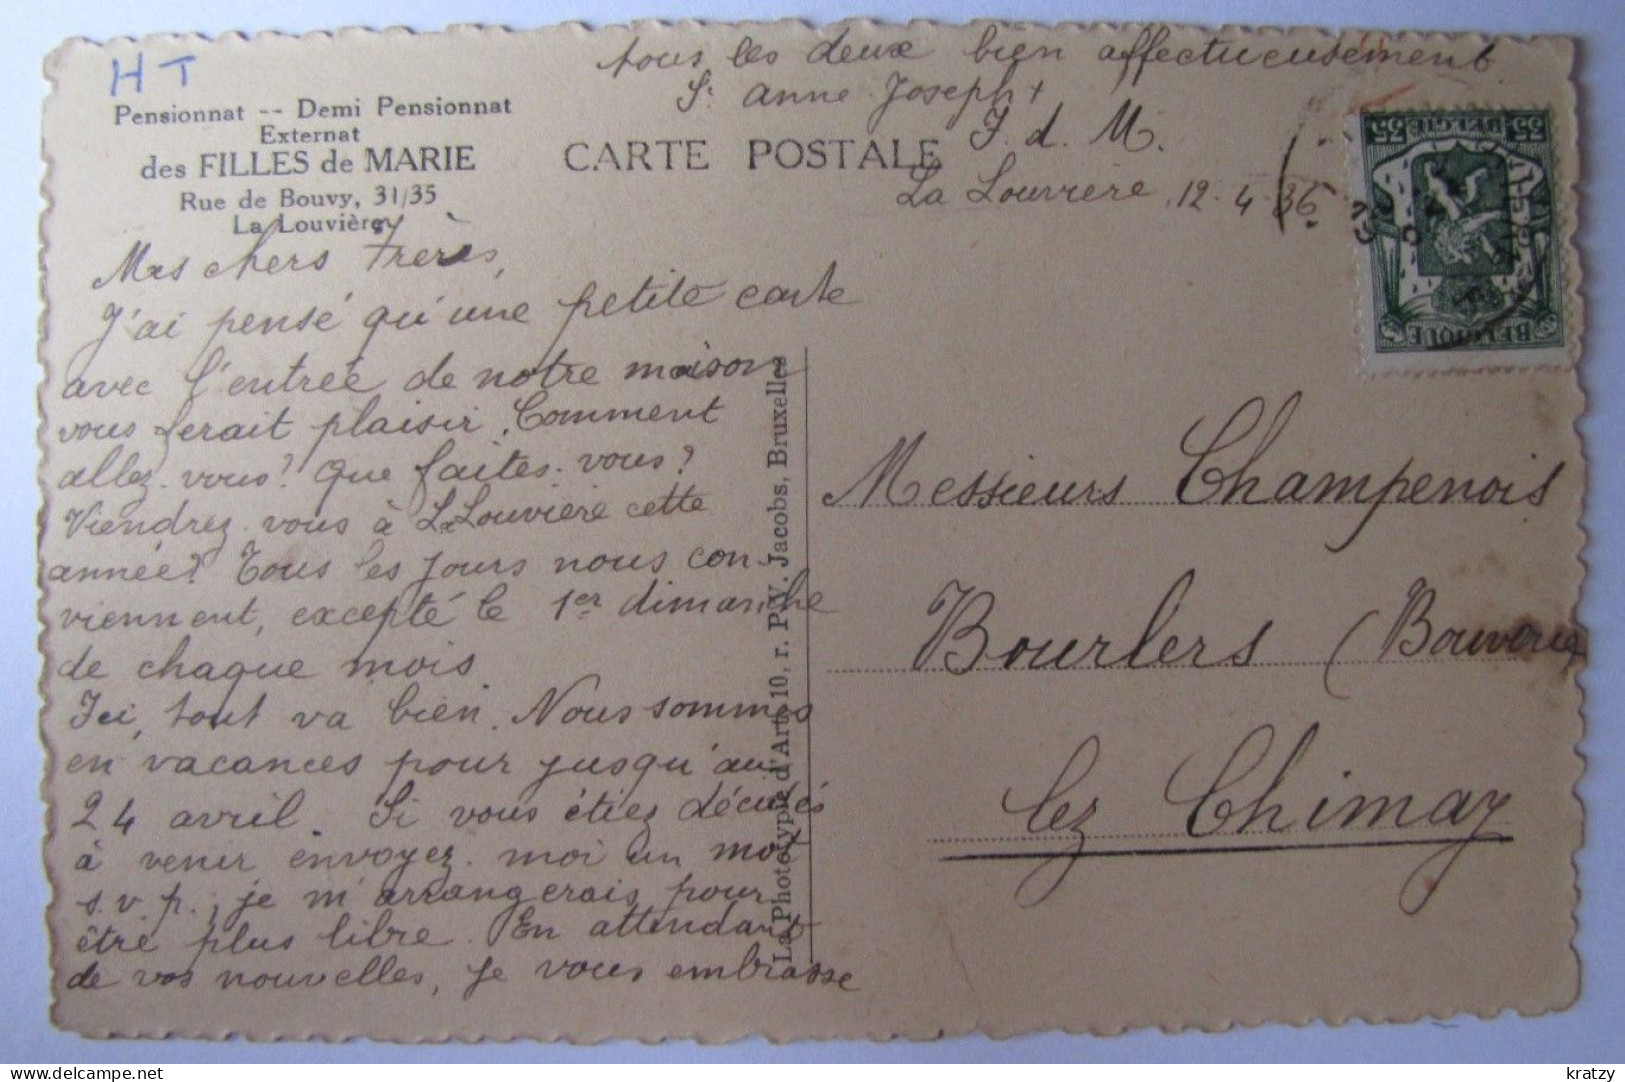 HT
Pensionnat -- Demi Pensionnat
Externat
des FILLES de MARIE
Rue de Bouvy, 31/35
La Louvière
CARTE POSTALE
La Louvière, 12-4-36
Mes chers Frères,
J'ai pensé qu'une petite carte
avec l'entrée de notre maison
vous ferait plaisir. Comment
allez-vous? Que faites-vous?
Viendrez-vous à La Louvière cette
année? Tous les jours nous con-
viennent, excepté le 1er dimanche
de chaque mois.
Ici, tout va bien. Nous sommes
en vacances pour jusqu'au
24 avril. Si vous étiez décidés
à venir envoyez-moi un mot
s.v.p.; je m'arrangerais pour
être plus libre. En attendant
de vos nouvelles, je vous embrasse
tous les deux bien affectueusement.
Sr Anne-Joseph +
F. d. M.
La Phototypie d'Art, 10, r. P. V. Jacobs, Bruxelles
35 BELGIË 35
BELGIQUE
Messieurs Champenois
Bourlers (Bouverie)
lez Chimay
kratzy